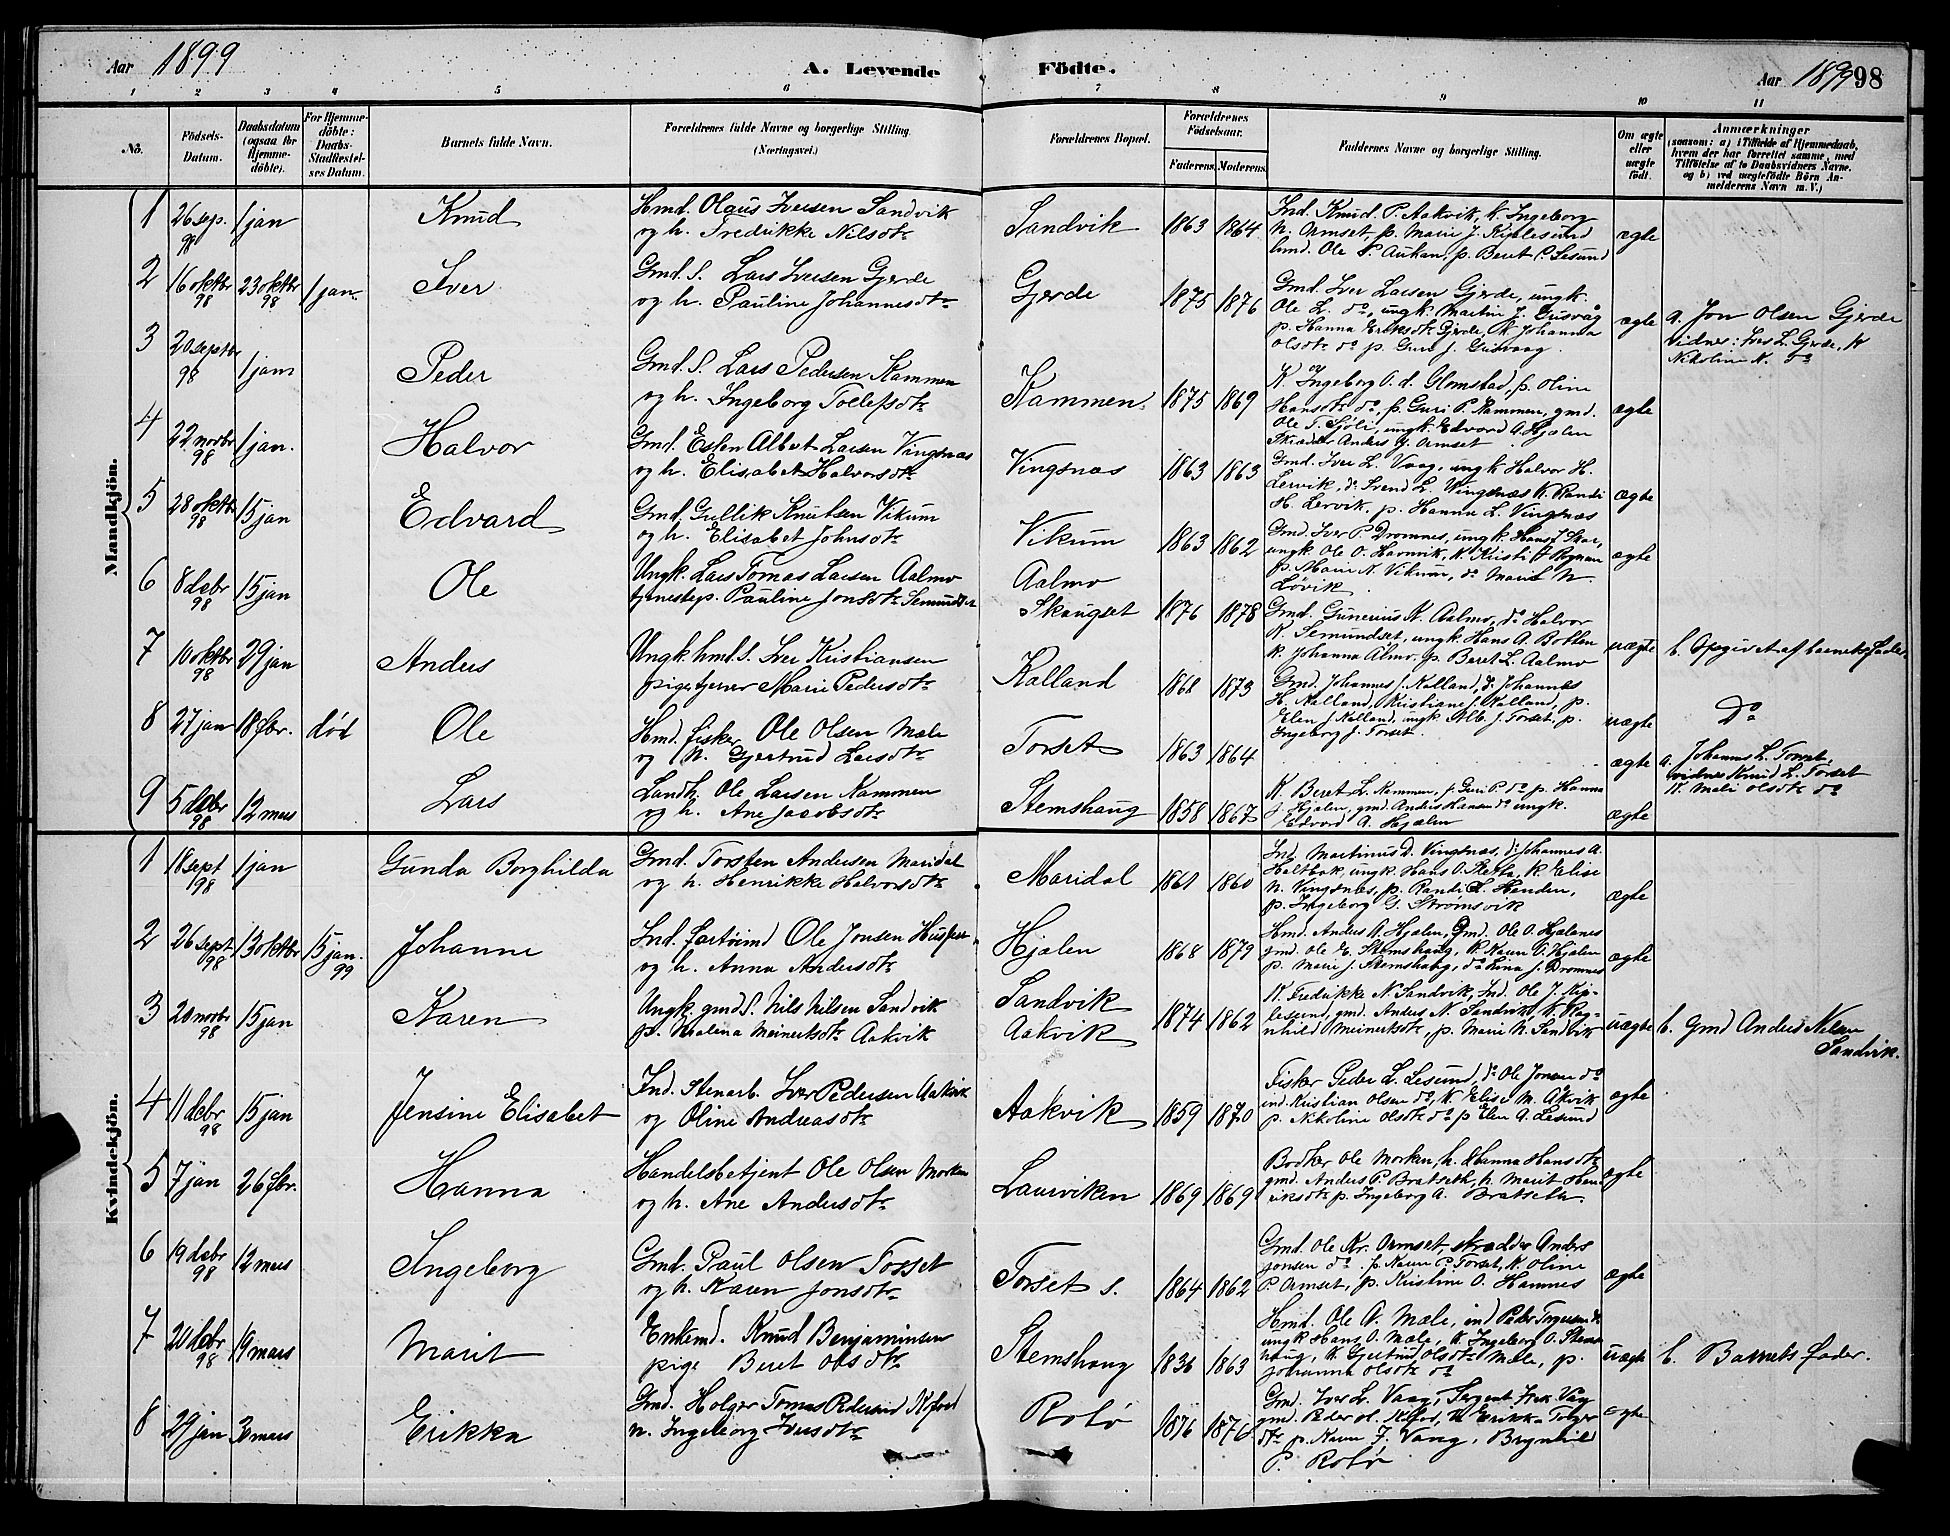 Aar 1899
A. Levende Födte.
Aar 1899 98
1 2 3 4 5 6 7 8 9 10 11
No.
Födsels-Datum.
Daabsdatum (ogsaa for Hjemme-döbte).
For Hjemme-döbte: Daabs-Stadfæstel-ses Datum.
Barnets fulde Navn.
Forældrenes fulde Navne og borgerlige Stilling.
(Næringsvei.)
Forældrenes Bopæl.
Forældrenes Födselsaar.
Faderens. Moderens.
Faddernes Navne og borgerlige Stilling.
Om ægte eller uægte födt.
Anmærkninger
(saasom: a) i Tilfælde af Hjemmedaab,
hvem der har forrettet samme, med
Tilföielse af to Daabsvidners Navne.
og b) ved uægtefödte Börn An-
melderens Navn m. V.)
Mandkjön.
1 26 sep. 98 1 jan Knud
Hmd. Olaus Iversen Sandvik
og h. Fredrikke Nilsdtr
Sandvik 1863 1864
Ind. Knud P. Aakvik, k. Ingeborg
N. Ormset, p. Marie J. Kiplesund
hmd. Ole S. Aukan, p. Beret C. Lesund
ægte
2 16 oktbr 98 23 oktbr 98 1 jan. Iver
Gmd. S. Lars Iversen Gjerde
og h. Pauline Johannesdtr
Gjerde 1875 1876
Gmd. Iver Larsen Gjerde, ungk.
Ole L. do, ungk. Martin J. Gusvåg
p. Hanna Eriksdtr Gjerde, k. Johanna
Olsdtr do p. Guri J. Gusvaag.
ægte
a. Jon Olsen Gjerde
vidner: Iver L. Gjerde, k
Nikoline N. do
3 20 septbr 98 1 jan Peder
Gmd. S. Lars Pedersen Kammen
og h. Ingeborg Tollefsdtr
Kammen. 1875 1869
K. Ingeborg O. d. Glomstad, p. Oline
Hansdtr do, p. Guri P. Kammen, gmd.
Ole T. Sjøli, ungk. Edvard A. Hjælen
Skrædder Anders J. Ormset
ægte
4 22 novbr 98 1 jan. Halvor
Gmd. Esten Albert Larsen Vingsnæs
og h. Elisabet Halvorsdtr
Vingsnæs 1863 1863
Gmd. Iver L. Vaag, ungk Halvor H.
Lervik, do Svend L. Vingsnæs k. Randi
H. Lervik, p. Hanna L. Vingsnæs
ægte
5 28 oktbr 98 15 jan Edvard
Gmd. Gullik Knutsen Vikum
og h. Elisabet Johnsdtr
Vikum 1863 1862
Gmd. Iver P. Dromnes, ungk. Hans J. Skar,
ungk. Ole O. Harmvik, k. Kristi J. Rognan
p. Marie N. Vikum, do Marit N.
Løvik
ægte
6 8 debr 98 15 jan Ole
Ungk. Lars Tomas Larsen Aalmo
tjenestep. Pauline Jonsdtr Semundset
Aalmo
Skaugset 1876 1878
Gmd. Gunerius K. Aalmo, do Halvor
K. Semundset, ungk. Hans A. Botten
k. Johanna Almo, p. Beret L. Aalmo
uægte
b. Opgivet af barnets fader
7 10 oktbr 98 29 jan Anders
Ungk. hmd. S. Iver Kristiansen
pige tjener Marie Pedersdtr
Kalland 1873
Gmd Johannes J. Kalland, do Johannes
H. Kalland, Kristiane J. Kalland, p.
Elen J. Kalland, ungk. Alb. J. Torset, p.
Ingeborg J. Torset.
uægte
Do
8 27 jan 18 fbr. død Ole
Hmd. fisker Ole Olsen Mæle
og h. Gjertrud Larsdtr
Torset 1863 1864
ægte
a. Johannes L. Torset,
vidner Knud L. Torset
k. Mali Olsdtr do
9 5 debr 98 12 mars Lars
Landh. Ole Larsen Kammen
og h. Ane Jacobsdtr
Stemshaug 1858 1867
K. Beret L. Kammen, p. Guri P. do p. Hanna
J. Hjælen, gmd. Anders Hansen do ungk.
Edvard A. Hjælen
ægte
Kvindekjön.
1 18 sept 98 1 jan Gunda Borghilda
Gmd. Torsten Andersen Maridal
og h. Henrikke Halvorsdtr
Maridal 1861 1860
Ind. Martinus D. Vingsnæs, do Johannes A.
Holtbak, ungk. Hans O. Sletta, k. Elise
N. Vingsnæs, p. Randi L. Henden,
p. Ingeborg G. Strømsvik
ægte
2 26 sept 98 13 oktbr 15 jan. 99 Johanne
Ind. fartøimd Ole Jonsen
og h. Anna Andersdtr
Hjælen 1868 1879
Hmd. Anders A. Hjælen, Gmd. Ole O. Hjælenes
gmd. Ole E. Stemshaug, k. Karen O. Hjælen
p. Marie J. Stemshaug, do Lina J. Dromnes
ægte
3 20 novbr 98 15 jan Karen
Ungk. gmd S. Nils Nilsen Sandvik
p. Malena Meinertsdtr Aakvik
Sandvik
Aakvik 1874 1862
K. Fredrikke N. Sandvik, Ind. Ole J. Kip-
lesund, gmd. Anders N. Sandvik, k. Rag-
nhild Meinertsdtr, p. Marie N. Sandvik
uægte
b. Gmd Anders Nilsen
Sandvik.
4 11 debr 98 15 jan Jensine Elisabet
Ind. Stenarb. Iver Pedersen Aakvik
og Oline Andreasdtr
Aakvik 1859 1870
Fisker Peder L. Lesund, do Ole Jonsen do
ind. Kristian Olsen do, k. Elise M. Akvik
p. Nikoline Olsdtr do p Elen A. Lesund
ægte
5 7 jan 26 fbr. Hanna
Handelsbetjent Ole Olsen Morken
og h. Ane Andersdtr
Laurviken 1869 1869
Bødker Ole Morken, h. Hanna Hansdtr
gmd. Anders P. Bratseth, h. Marit Hen-
riksdtr p. Ingeborg A. Bratseth.
ægte
6 19 debr 98 12 mars Ingeborg
Gmd. Paul Olsen Torset
og h. Karen Jonsdtr
Torset S. 1864 1862
Gmd. Ole Kr. Ormset, skrædder Anders
Jonsen do. p. Karen P. Torset, k. Oline
P. Ormset, p. Kristine O. Hamnes
ægte
7 20 debr 98 19 mars Marit
Enkemd. Knud Benjaminsen
pige Beret Olsdtr
Stemshaug 1836 1863
Hmd. Ole A. Mæle, ind Peder
ungk Hans O. Mæle, k. Ingeborg O. Stems-
haug, k. Gjertrud Olsdtr Mæle, p.
Johanna Olsdtr do
uægte
b. Barnets fader.
8 29 jan mars Erikka
Gmd. Holger Tomas Pedersen
h. Ingeborg Iversdtr
Rotø 1876 1876
Gmd. Iver L. Vaag, Sergent Vaag
gmd. Peder k. Erikka Holger
dtr p. Karen J. Vaag, Brynhild
P. Rotø
ægte